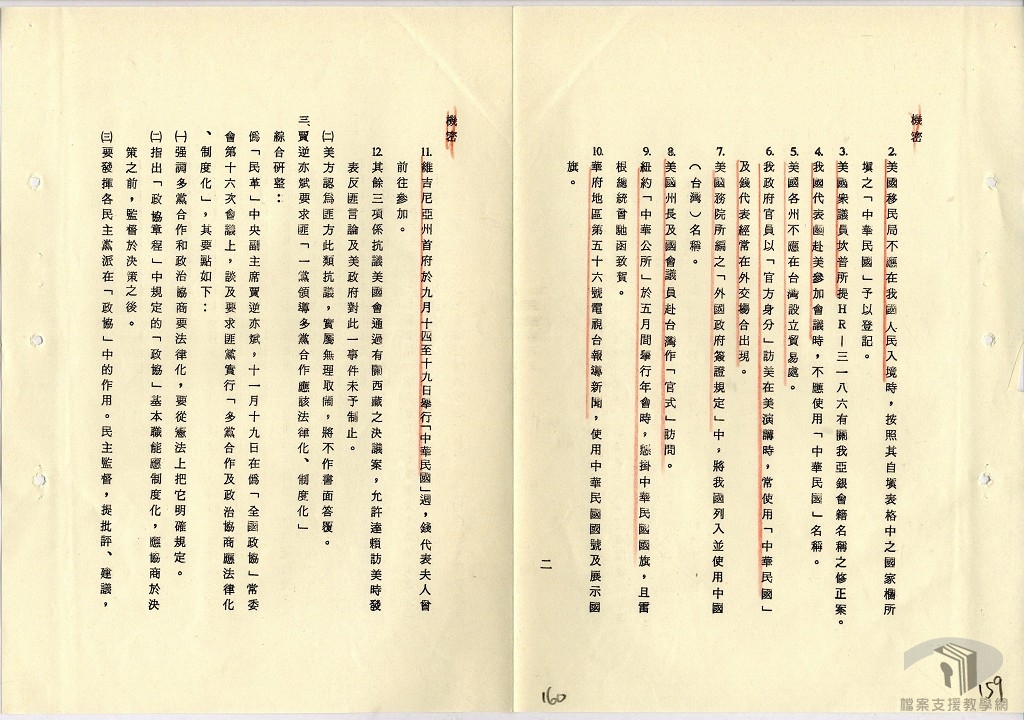 機密
2.美國移民局不應在我國人民入境時，按照其自填表格中之國家欄所
填之「中華民國」予以登記。
3.美國衆議員坎普所提HR—三一八六有關我亞銀會籍名稱之修正案。
4.我國代表團赴美參加會議時，不應使用「中華民國」名稱。
5.美國各州不應在台灣設立貿易處。
6.我政府官員以「官方身分」訪美在美演講時，常使用「中華民國」
及錢代表經常在外交場合出現。
7.美國務院所編之「外國政府簽證規定」中，將我國列入並使用中國
（台灣）名稱。
8.美國州長及國會議員赴台灣作「官式」訪問。
9.紐約「中華公所」於五月間舉行年會時，懸掛中華民國國旗，且雷
根總統曾馳函致賀。
10.華府地區第五十六號電視台報導新聞，使用中華民國國號及展示國
旗。
二
159
機密
11.維吉尼亞州首府於九月十四至十九日舉行「中華民國」週，錢代表夫人曾
前往參加。
12.其餘三項係抗議美國會通過有關西藏之決議案，允許達賴訪美時發
表反匪言論及美政府對此一事件未予制止。
㈡美方認爲匪方此類抗議，實屬無理取鬧，將不作書面答覆。
三、賈逆亦斌要求匪「一黨領導多黨合作應該法律化、制度化」
綜合研整：
僞「民革」中央副主席賈逆亦斌，十一月十九日在僞「全國政協」常委
會第十六次會議上，談及要求匪黨實行「多黨合作及政治協商應法律化
、制度化」，其要點如下：
㈠强調多黨合作和政治協商要法律化，要從憲法上把它明確規定。
㈡指出「政協章程」中規定的「政協」基本職能應制度化，應協商於決
策之前，監督於決策之後。
㈢要發揮各民主黨派在「政協」中的作用。民主監督，提批評、建議，
160
檔案支援教學網